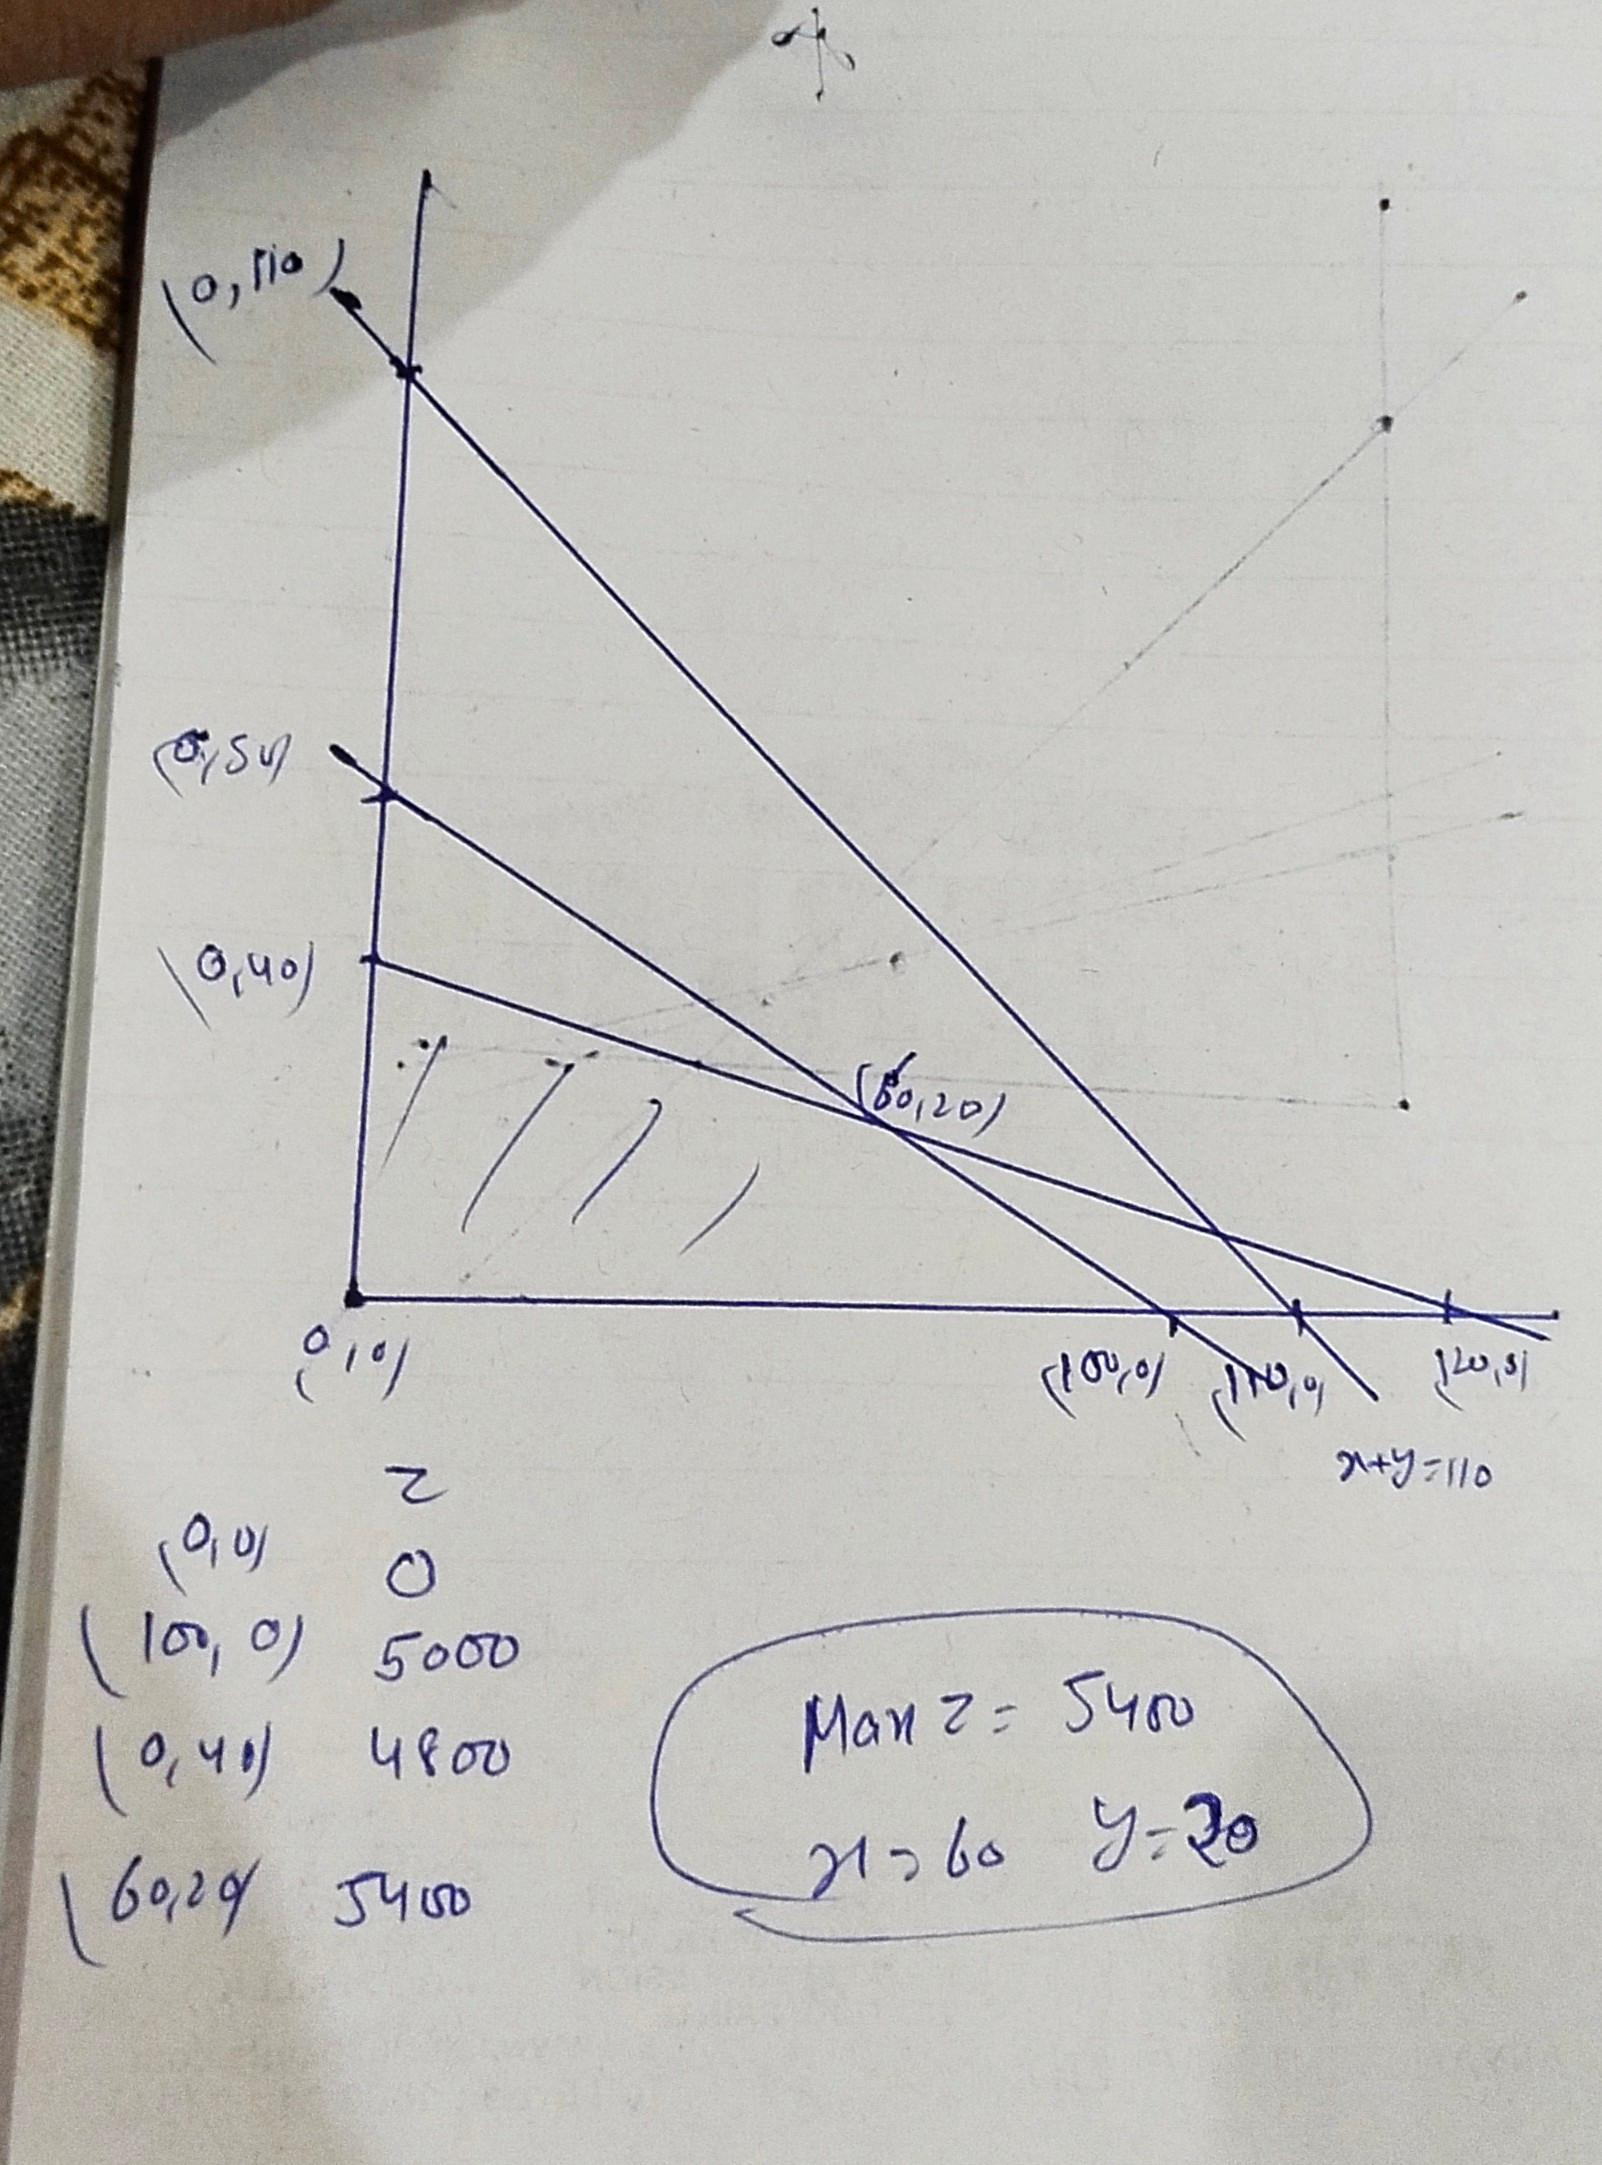 (0,110)
(0,50)
(0,40)
(60,20)
(0,0)
(100,0) (110,0) (120,0)
x+y=110
Z
(0,0) 0
(100,0) 5000
(0,40) 4800
(60,20) 5400
Max Z = 5400
x=60 y=20